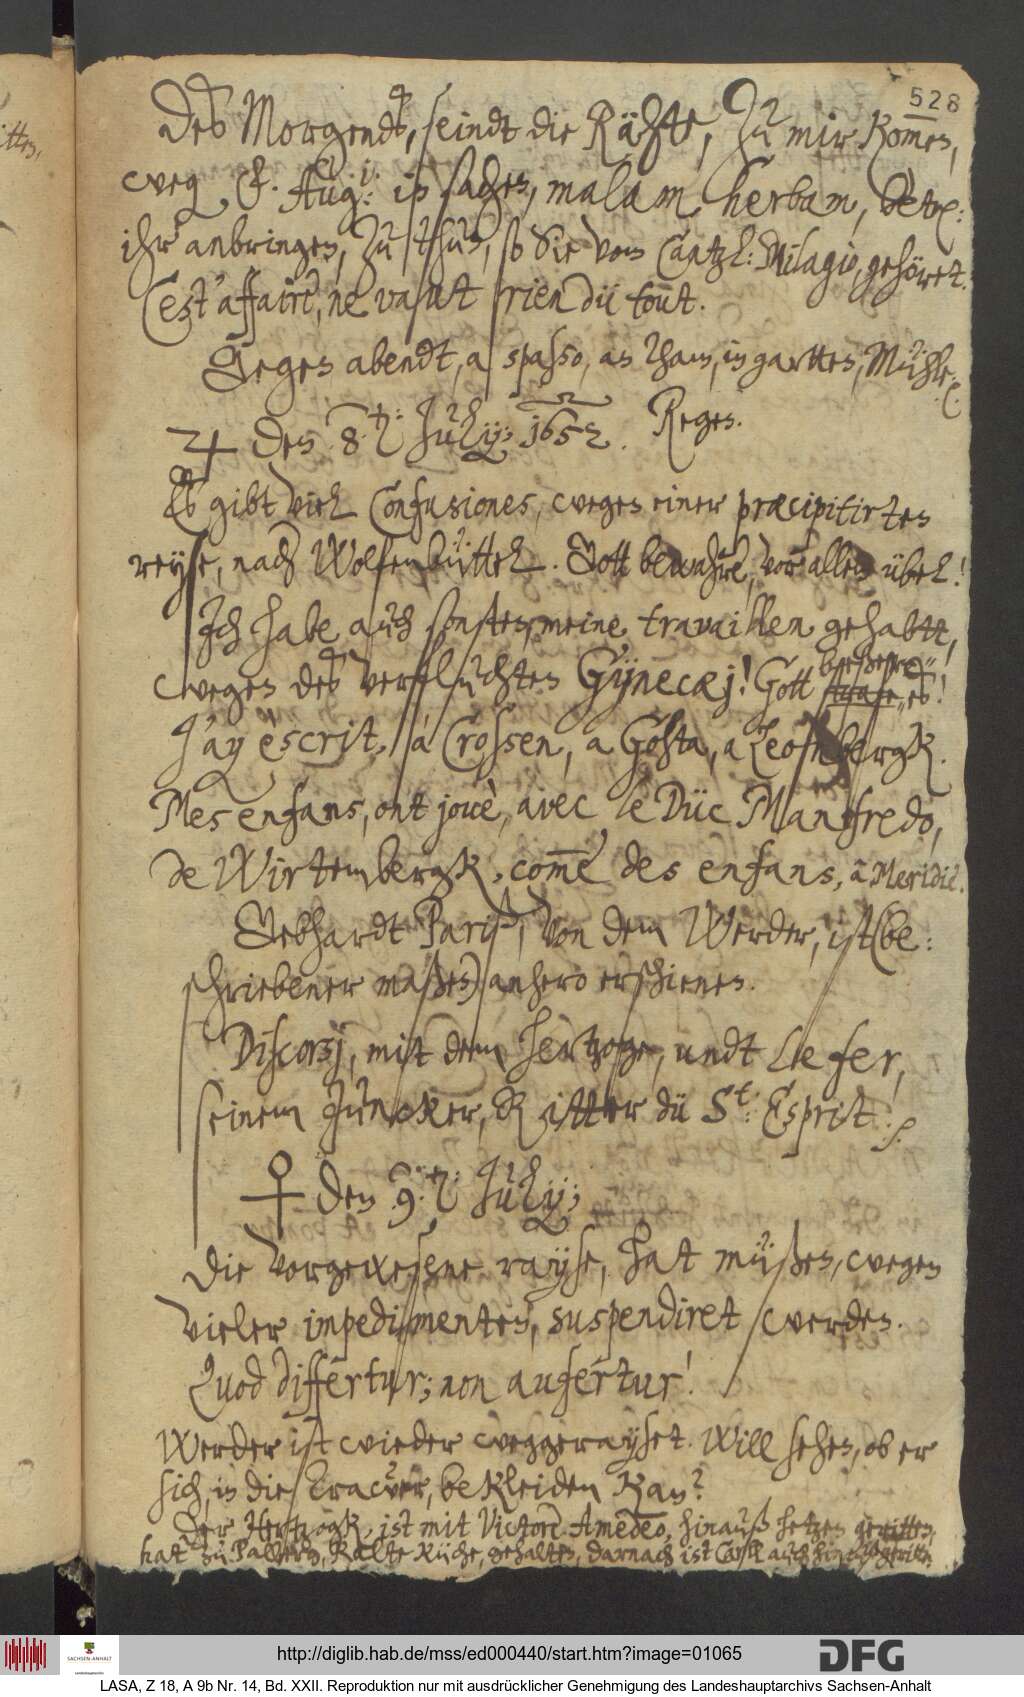 528
Deß Morgendts, seindt die Rähte, zu mir kom̄en,
weg. F. Aug: in sachen, malam herbam, betr:
ihr anbringen, zu thun, so Sie vom Cantzl: Milagio, gehöret.
C'est affaire, ne vaut rien du tout.
Gegen abendt, a spasso, an tham, in gartten, Mühle
♃ den 8.t: July; 1652. Regen.
Es gibt viel Confusiones, wegen einer præcipitirten
reyse, nach Wolfenbüttel. Gott bewahre, vor allem übel!
Ich habe auch sonsten, meine travaillen gehabtt,
wegen deß verfluchten Gynecæj! Gott beßere es!
J'ay escrit, a Crossen, a Gosta, a
Mes enfans, ont joué, avec le Düc Manfredo,
de Wirtembergk, com̄e des enfans, a Meridie.
Gebhardt Pariß, von dem Werder, ist (be:
schriebener maßen) anhero erschienen.
Discorsj, mit dem Hertzoge, undt Liefer,
seinem Juncker, Ritter du St: Esprit.
♀ den 9.t: July;
Die vorgewesene rayse, hat müßen, wegen
vieler impedimenten, suspendiret werden.
Quod differtur; non aufertur!
Werder ist wieder weggerayset. Will sehen, ob er
sich, in die trawer, bekleiden kan?
Der Hertzogk, ist mit Victore Amedeo, hinauß hetzen geritten,
hat zu Palbergk, kalte küche, gehalten, darnach ist Carll auch hinauß geritten
http://diglib.hab.de/mss/ed000440/start.htm?image=01065
SACHSEN-ANHALT
DFG
LASA, Z 18, A 9b Nr. 14, Bd. XXII. Reproduktion nur mit ausdrücklicher Genehmigung des Landeshauptarchivs Sachsen-Anhalt